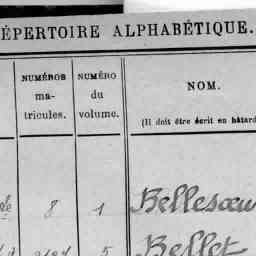 ÉPERTOIRE ALPHABÉTIQUE.
NUMÉROS
ma-
tricules.
NUMÉRO
du
volume.
NOM.
(Il doit être écrit en bâtard
8 1 Bellesœu
5 Bellet